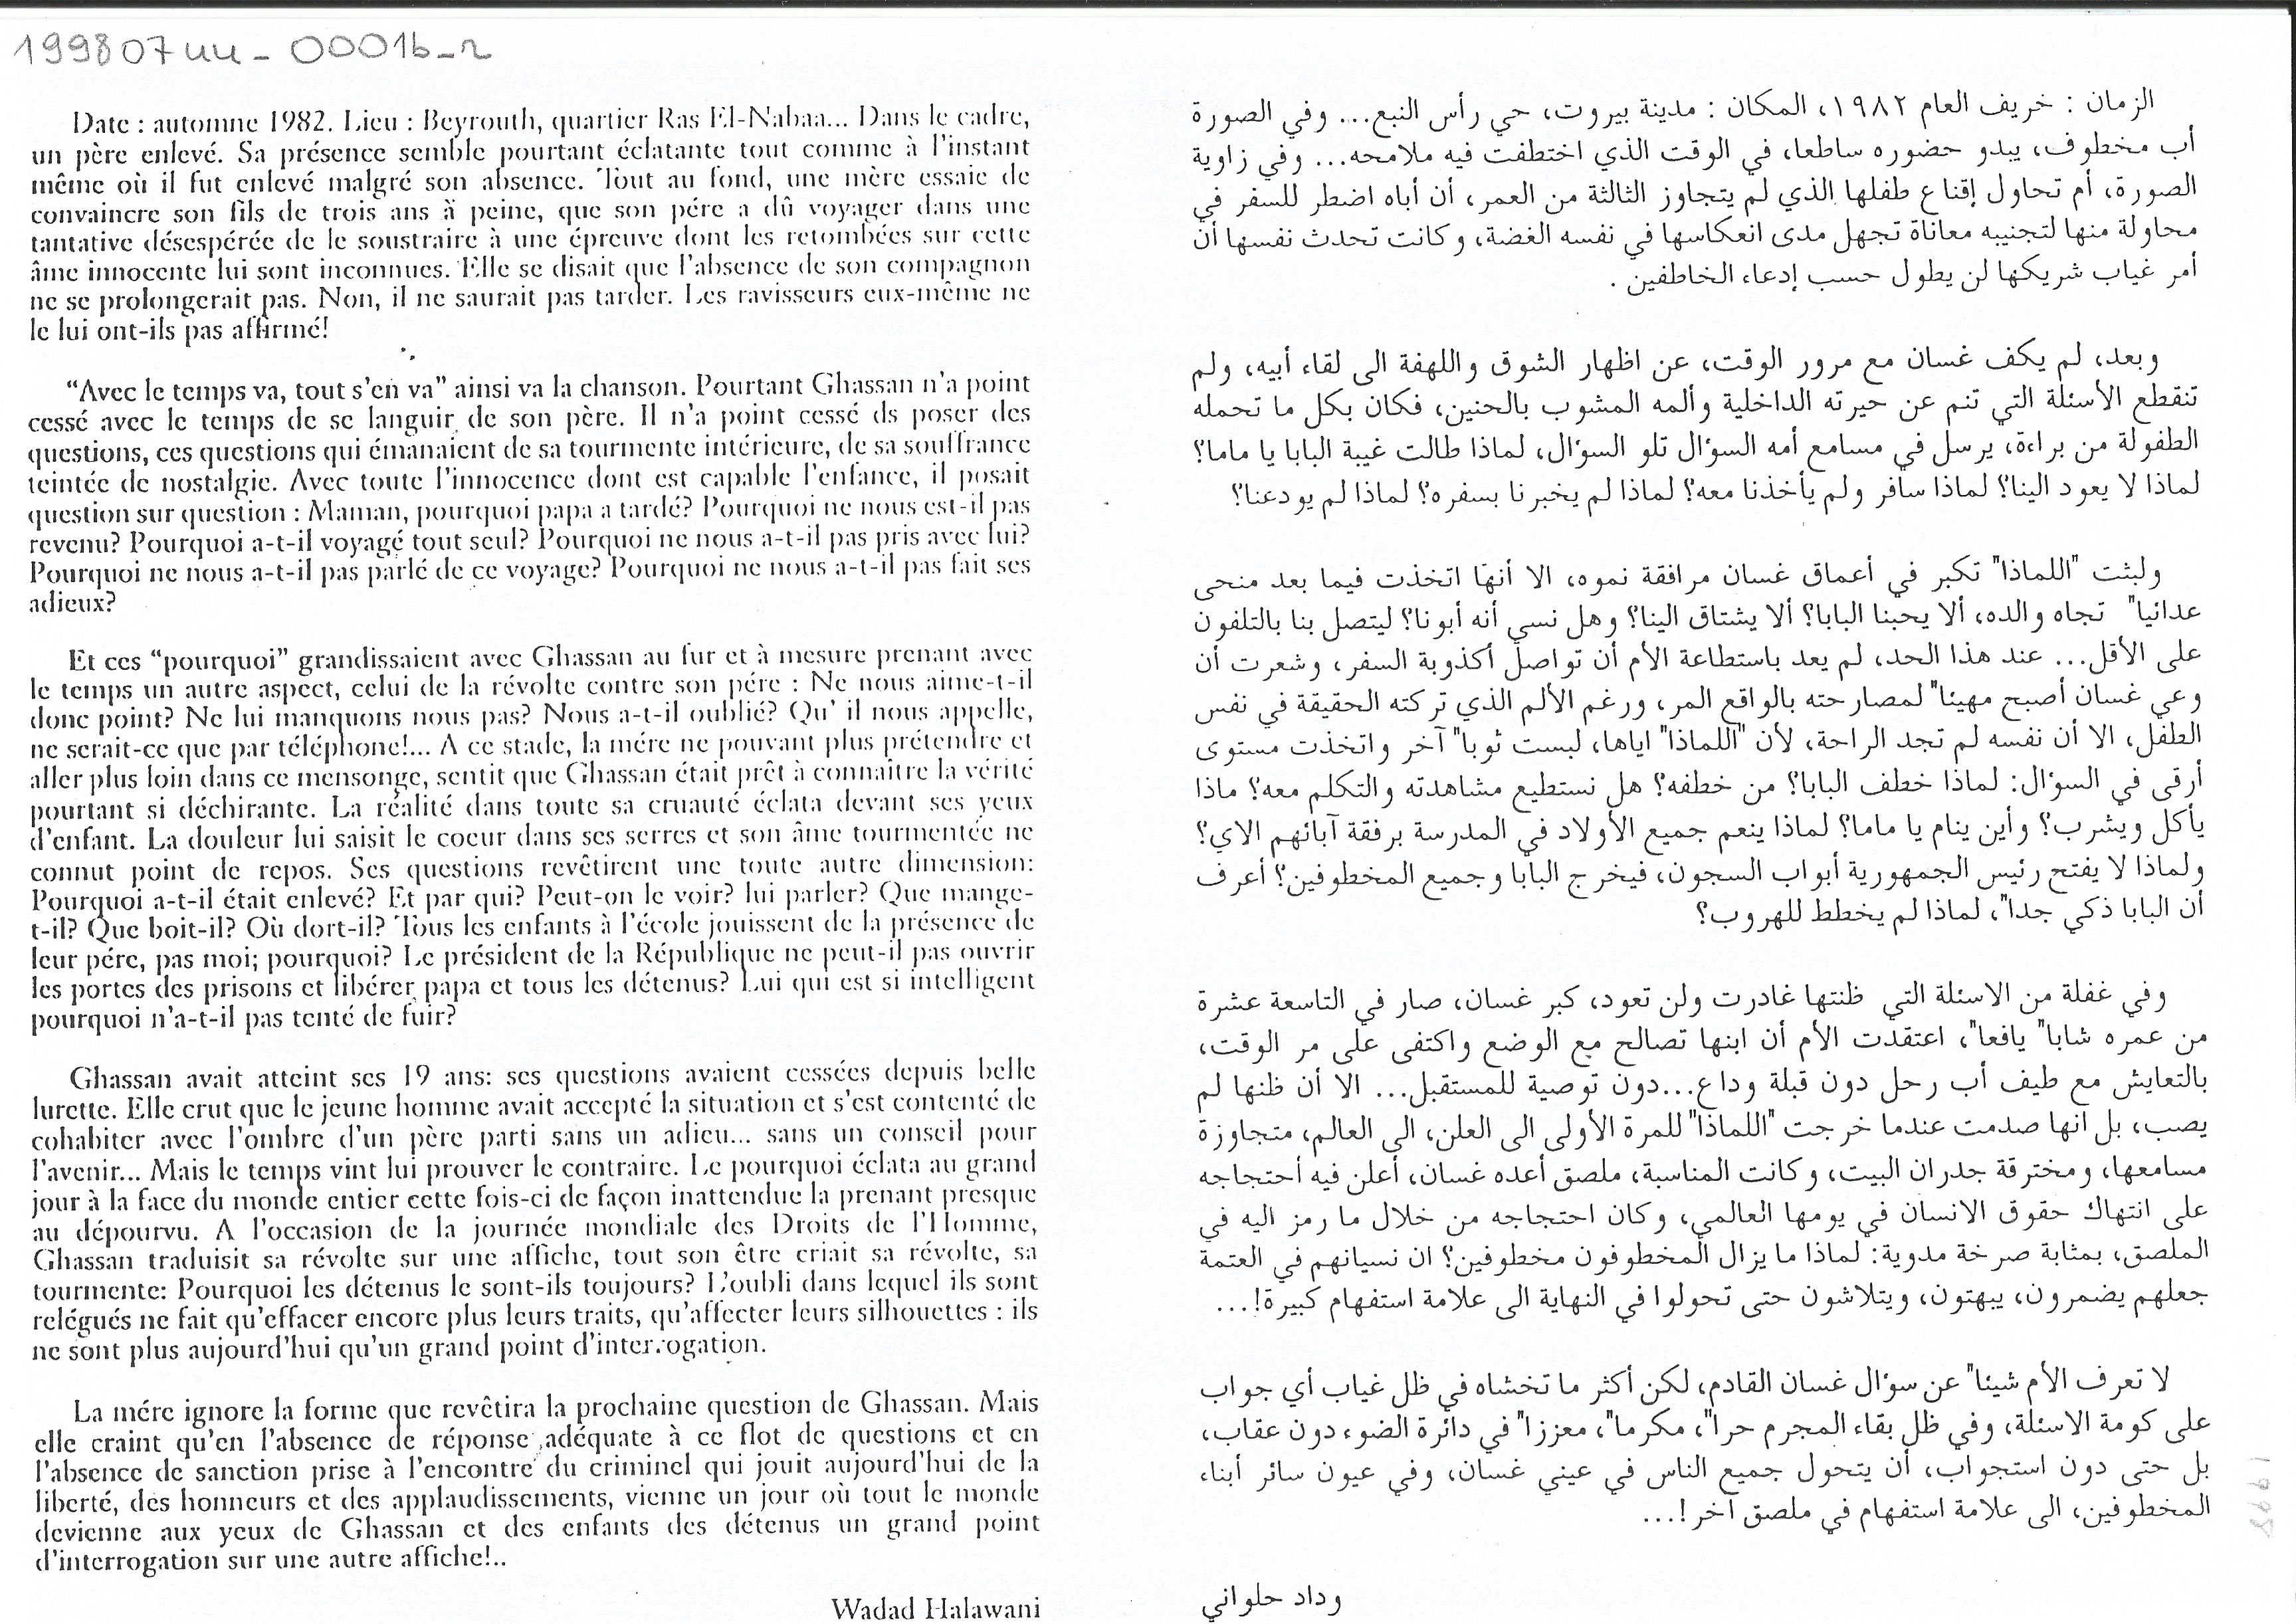 199807uu_0001b_r
Date : automne 1982. Lieu : Beyrouth, quartier Ras El-Nabaa... Dans le cadre,
un père enlevé. Sa présence semble pourtant éclatante tout comme à l'instant
même où il fut enlevé malgré son absence. Tout au fond, une mère essaie de
convaincre son fils de trois ans à peine, que son pére a dû voyager dans une
tantative désespérée de le soustraire à une épreuve dont les retombées sur cette
âme innocente lui sont inconnues. Elle se disait que l'absence de son compagnon
ne se prolongerait pas. Non, il ne saurait pas tarder. Les ravisseurs eux-même ne
le lui ont-ils pas affirmé!
“Avec le temps va, tout s'en va” ainsi va la chanson. Pourtant Ghassan n'a point
cessé avec le temps de se languir de son père. Il n'a point cessé ds poser des
questions, ces questions qui émanaient de sa tourmente intérieure, de sa souffrance
teintée de nostalgie. Avec toute l'innocence dont est capable l'enfance, il posait
question sur question : Maman, pourquoi papa a tardé? Pourquoi ne nous est-il pas
revenu? Pourquoi a-t-il voyagé tout seul? Pourquoi ne nous a-t-il pas pris avec lui?
Pourquoi ne nous a-t-il pas parlé de ce voyage? Pourquoi ne nous a-t-il pas fait ses
adieux?
Et ces “pourquoi” grandissaient avec Ghassan au fur et à mesure prenant avec
le temps un autre aspect, celui de la révolte contre son pére : Ne nous aime-t-il
donc point? Ne lui manquons nous pas? Nous a-t-il oublié? Qu' il nous appelle,
ne serait-ce que par téléphone!... A ce stade, la mére ne pouvant plus prétendre et
aller plus loin dans ce mensonge, sentit que Ghassan était prêt à connaître la vérité
pourtant si déchirante. La réalité dans toute sa cruauté éclata devant ses yeux
d'enfant. La douleur lui saisit le coeur dans ses serres et son âme tourmentée ne
connut point de repos. Ses questions revêtirent une toute autre dimension:
Pourquoi a-t-il était enlevé? Et par qui? Peut-on le voir? lui parler? Que mange-
t-il? Que boit-il? Où dort-il? Tous les enfants à l'école jouissent de la présence de
leur pére, pas moi; pourquoi? Le président de la République ne peut-il pas ouvrir
les portes des prisons et libérer papa et tous les détenus? Lui qui est si intelligent
pourquoi n'a-t-il pas tenté de fuir?
Ghassan avait atteint ses 19 ans: ses questions avaient cessées depuis belle
lurette. Elle crut que le jeune homme avait accepté la situation et s'est contenté de
cohabiter avec l'ombre d'un père parti sans un adieu... sans un conseil pour
l'avenir... Mais le temps vint lui prouver le contraire. Le pourquoi éclata au grand
jour à la face du monde entier cette fois-ci de façon inattendue la prenant presque
au dépourvu. A l'occasion de la journée mondiale des Droits de l'Homme,
Ghassan traduisit sa révolte sur une affiche, tout son être criait sa révolte, sa
tourmente: Pourquoi les détenus le sont-ils toujours? L'oubli dans lequel ils sont
relégués ne fait qu'effacer encore plus leurs traits, qu'affecter leurs silhouettes : ils
ne sont plus aujourd'hui qu'un grand point d'interrogation.
La mére ignore la forme que revêtira la prochaine question de Ghassan. Mais
elle craint qu'en l'absence de réponse adéquate à ce flot de questions et en
l'absence de sanction prise à l'encontre du criminel qui jouit aujourd'hui de la
liberté, des honneurs et des applaudissements, vienne un jour où tout le monde
devienne aux yeux de Ghassan et des enfants des détenus un grand point
d'interrogation sur une autre affiche!..
Wadad Halawani
الزمان : خريف العام ١٩٨٢، المكان : مدينة بيروت، حي رأس النبع... وفي الصورة
أب مخطوف، يبدو حضوره ساطعا، في الوقت الذي اختطفت فيه ملامحه... وفي زاوية
الصورة، أم تحاول إقناع طفلها الذي لم يتجاوز الثالثة من العمر، أن أباه اضطر للسفر في
محاولة منها لتجنيبه معاناة تجهل مدى انعكاسها في نفسه الغضة، وكانت تحدث نفسها أن
أمر غياب شريكها لن يطول حسب إدعاء الخاطفين .
وبعد، لم يكف غسان مع مرور الوقت، عن اظهار الشوق واللهفة الى لقاء أبيه، ولم
تنقطع الأسئلة التي تنم عن حيرته الداخلية وألمه المشوب بالحنين، فكان بكل ما تحمله
الطفولة من براءة، يرسل في مسامع أمه السؤال تلو السؤال، لماذا طالت غيبة البابا يا ماما؟
لماذا لا يعود الينا؟ لماذا سافر ولم يأخذنا معه؟ لماذا لم يخبرنا بسفره؟ لماذا لم يودعنا؟
ولبثت "اللماذا" تكبر في أعماق غسان مرافقة نموه، الا أنها اتخذت فيما بعد منحى
عدائيا" تجاه والده، ألا يحبنا البابا؟ ألا يشتاق الينا؟ وهل نسي أنه أبونا؟ ليتصل بنا بالتلفون
على الأقل... عند هذا الحد، لم يعد باستطاعة الأم أن تواصل أكذوبة السفر، وشعرت أن
وعي غسان أصبح مهيئا" لمصارحته بالواقع المر، ورغم الألم الذي تركته الحقيقة في نفس
الطفل، الا أن نفسه لم تجد الراحة، لأن "اللماذا" اياها، لبست ثوبا" آخر واتخذت مستوى
أرقى في السؤال: لماذا خطف البابا؟ من خطفه؟ هل نستطيع مشاهدته والتكلم معه؟ ماذا
يأكل ويشرب؟ وأين ينام يا ماما؟ لماذا ينعم جميع الأولاد في المدرسة برفقة آبائهم الاي؟
ولماذا لا يفتح رئيس الجمهورية أبواب السجون، فيخرج البابا وجميع المخطوفين؟ أعرف
أن البابا ذكي جدا"، لماذا لم يخطط للهروب؟
وفي غفلة من الاسئلة التي ظنتها غادرت ولن تعود، كبر غسان، صار في التاسعة عشرة
من عمره شابا" يافعا"، اعتقدت الأم أن ابنها تصالح مع الوضع واكتفى على مر الوقت،
بالتعايش مع طيف أب رحل دون قبلة وداع...دون توصية للمستقبل... الا أن ظنها لم
يصب، بل انها صدمت عندما خرجت "اللماذا" للمرة الأولى الى العلن، الى العالم، متجاوزة
مسامعها، ومخترقة جدران البيت، وكانت المناسبة، ملصق أعده غسان، أعلن فيه أحتجاجه
على انتهاك حقوق الانسان في يومها العالمي، وكان احتجاجه من خلال ما رمز اليه في
الملصق، بمثابة صرخة مدوية: لماذا ما يزال المخطوفون مخطوفين؟ ان نسيانهم في العتمة
جعلهم يضمرون، يبهتون، ويتلاشون حتى تحولوا في النهاية الى علامة استفهام كبيرة!...
لا تعرف الأم شيئا" عن سؤال غسان القادم، لكن أكثر ما تخشاه في ظل غياب أي جواب
على كومة الاسئلة، وفي ظل بقاء المجرم حرا"، مكرما"، معززا" في دائرة الضوء دون عقاب،
بل حتى دون استجواب، أن يتحول جميع الناس في عيني غسان، وفي عيون سائر أبناء
المخطوفين، الى علامة استفهام في ملصق آخر!...
وداد حلواني
1998